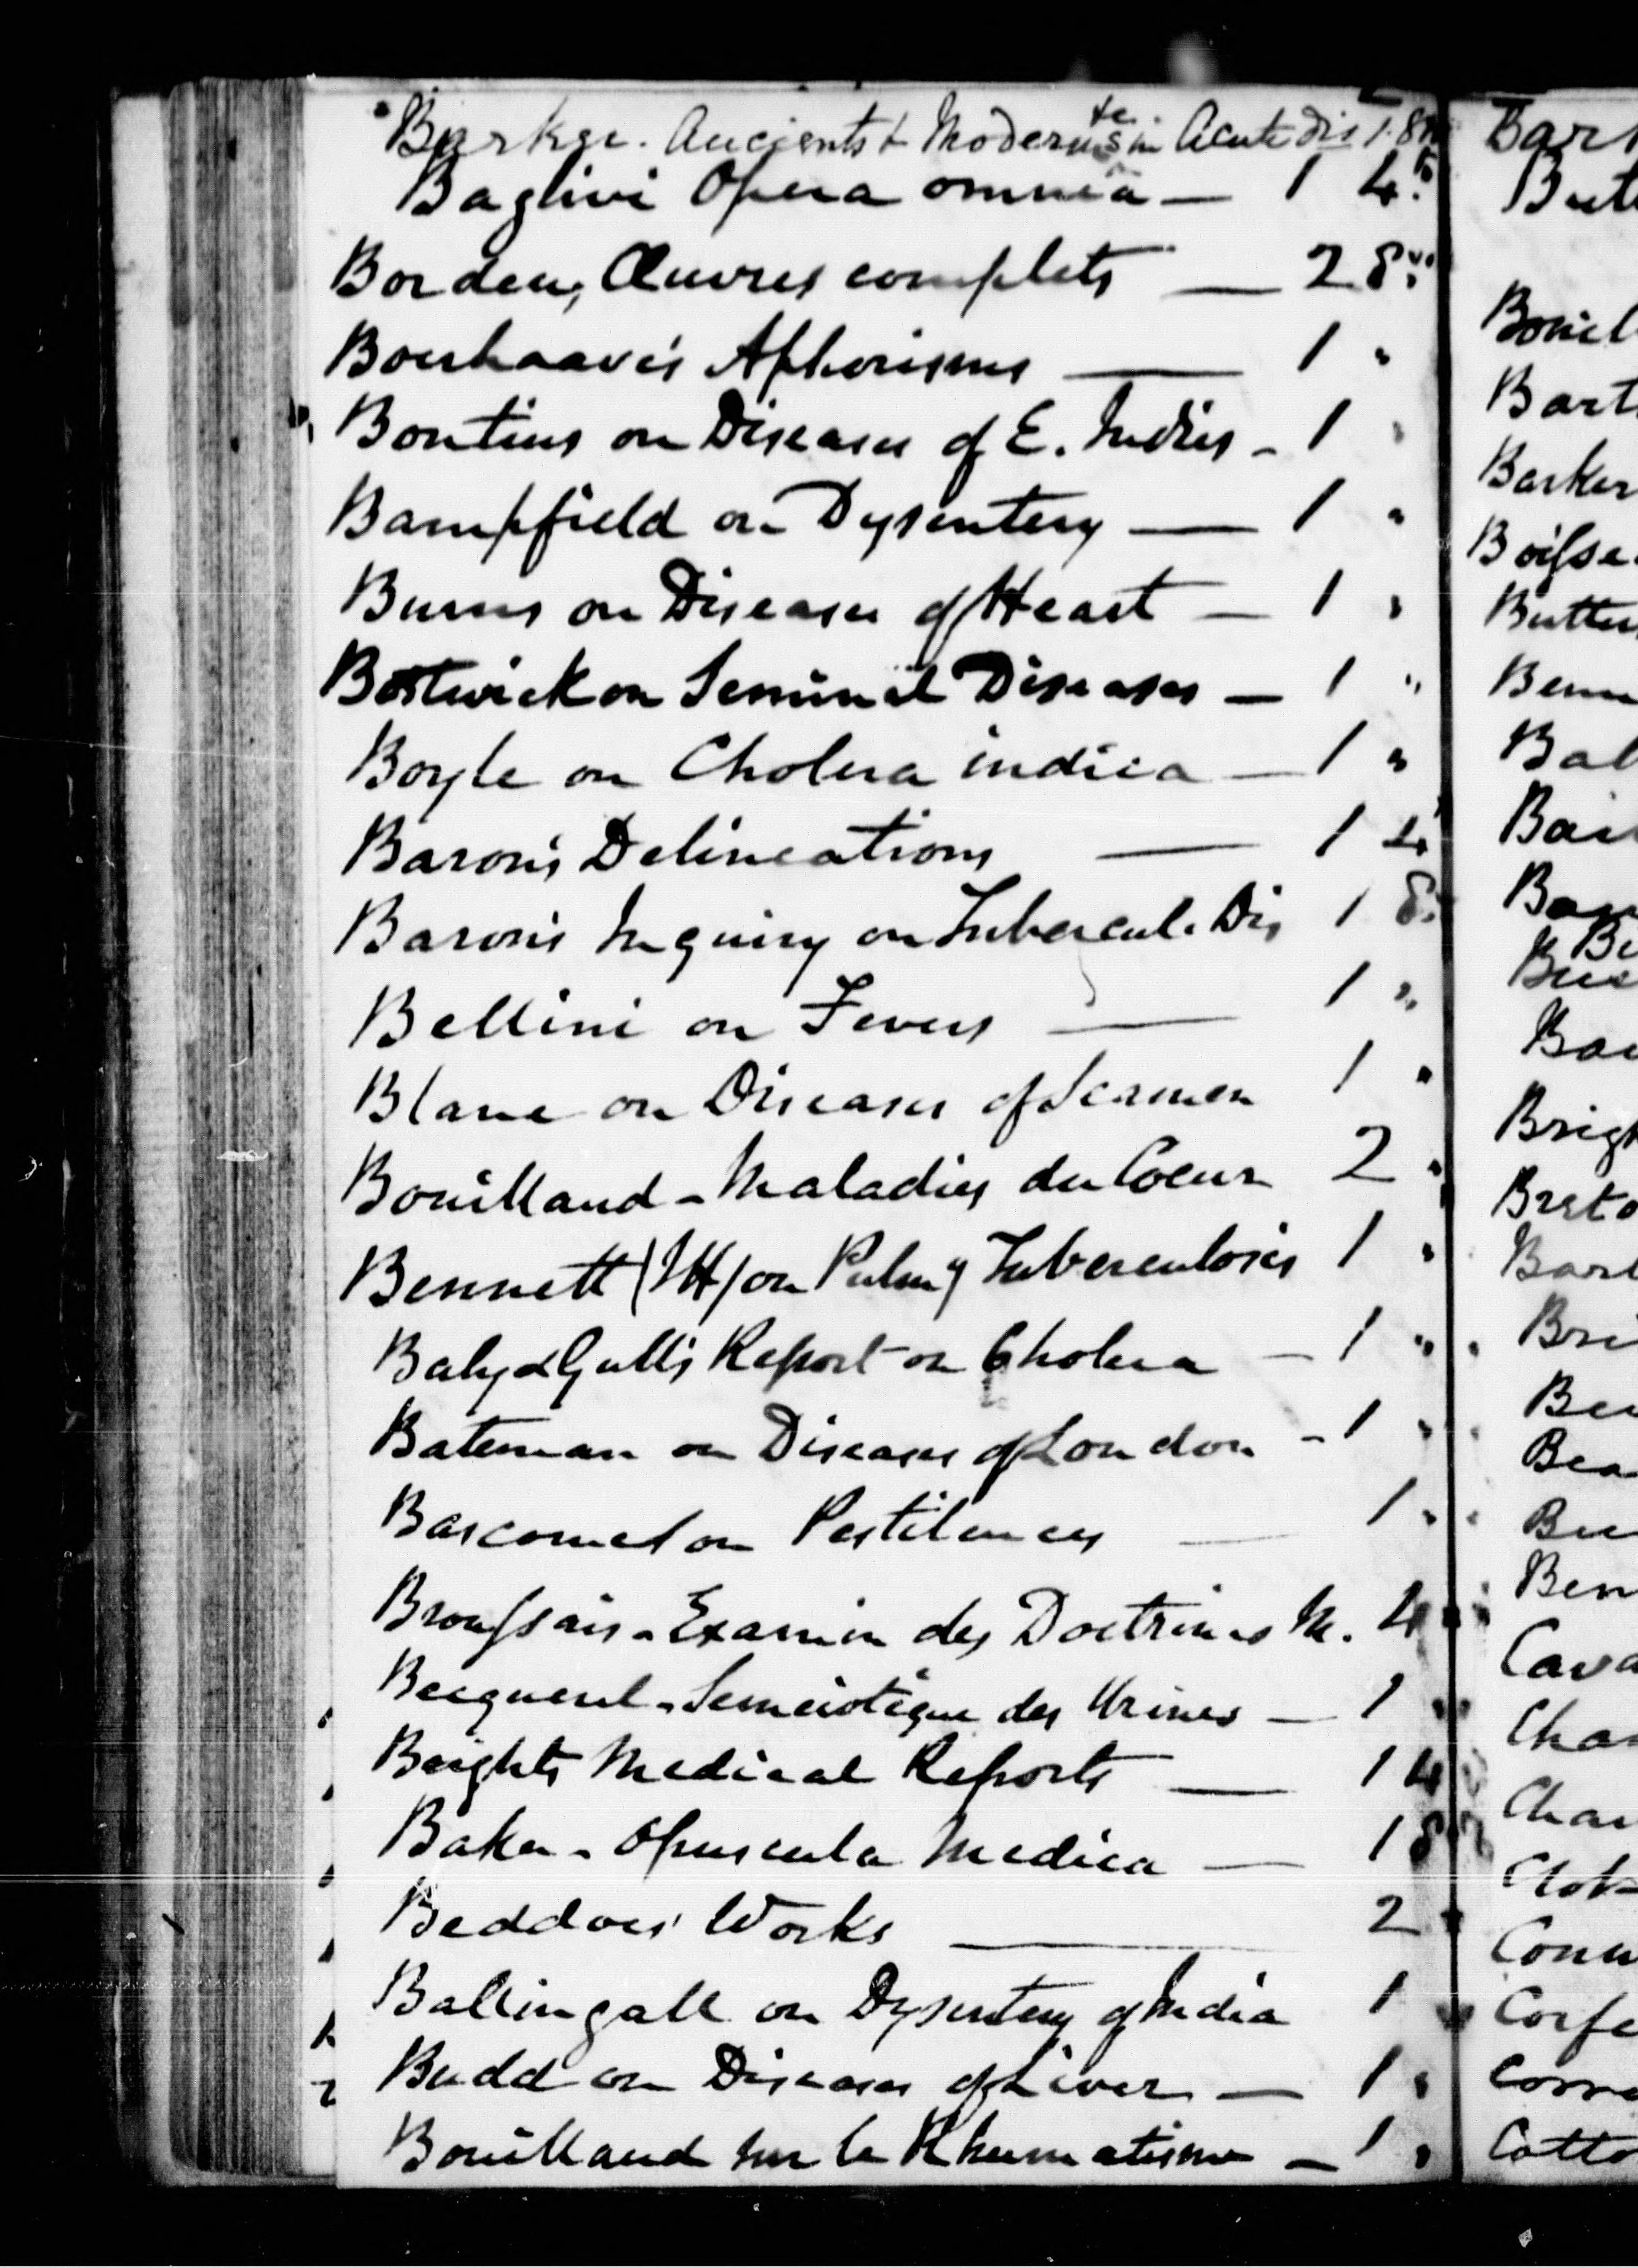 Barker. Ancients & Moderns te. in Acute dis 1. 8vo
Baglivi Opera omnia — 1 4to
Bordeu, Œuvres complets — 2 8vo
Boerhaave's Aphorisms — 1 "
Bontius on Diseases of E. Indies - 1 "
Bampffield on Dysentery — 1 "
Burns on Diseases of Heart — 1 "
Bostwick on Seminal Diseases — 1 "
Boyle on Cholera indica — 1 "
Baron's Delineations — 1 4
Baron's Inquiry on Tubercul. Dis 1 8
Bellini on Fevers — 1 "
Blane on Diseases of Seamen 1 "
Bouillaud - Maladies du Coeur 2 "
Bennett (JH) on Pulmy Tuberculosis 1 "
Baly & Gull's Report on Cholera — 1 "
Bateman on Diseases of London - 1 "
Bascome on Pestilences — 1 "
Broussais - Examen des Doctrines M. 4
Becquerel - Semeiotique des Urines — 1 "
Brights Medical Reports — 1 4
Baker - Opuscula Medica — 1 8
Beddoes' Works — 2
Ballingall on Dysentery of India 1
Budd on Diseases of Liver — 1 "
Bouillaud sur le Rhumatisme — 1 "
Bart
Barker
Boisse
Bal
Brig
Breto
Bri
Cava
Cha
Cha
Corfe
Cotto